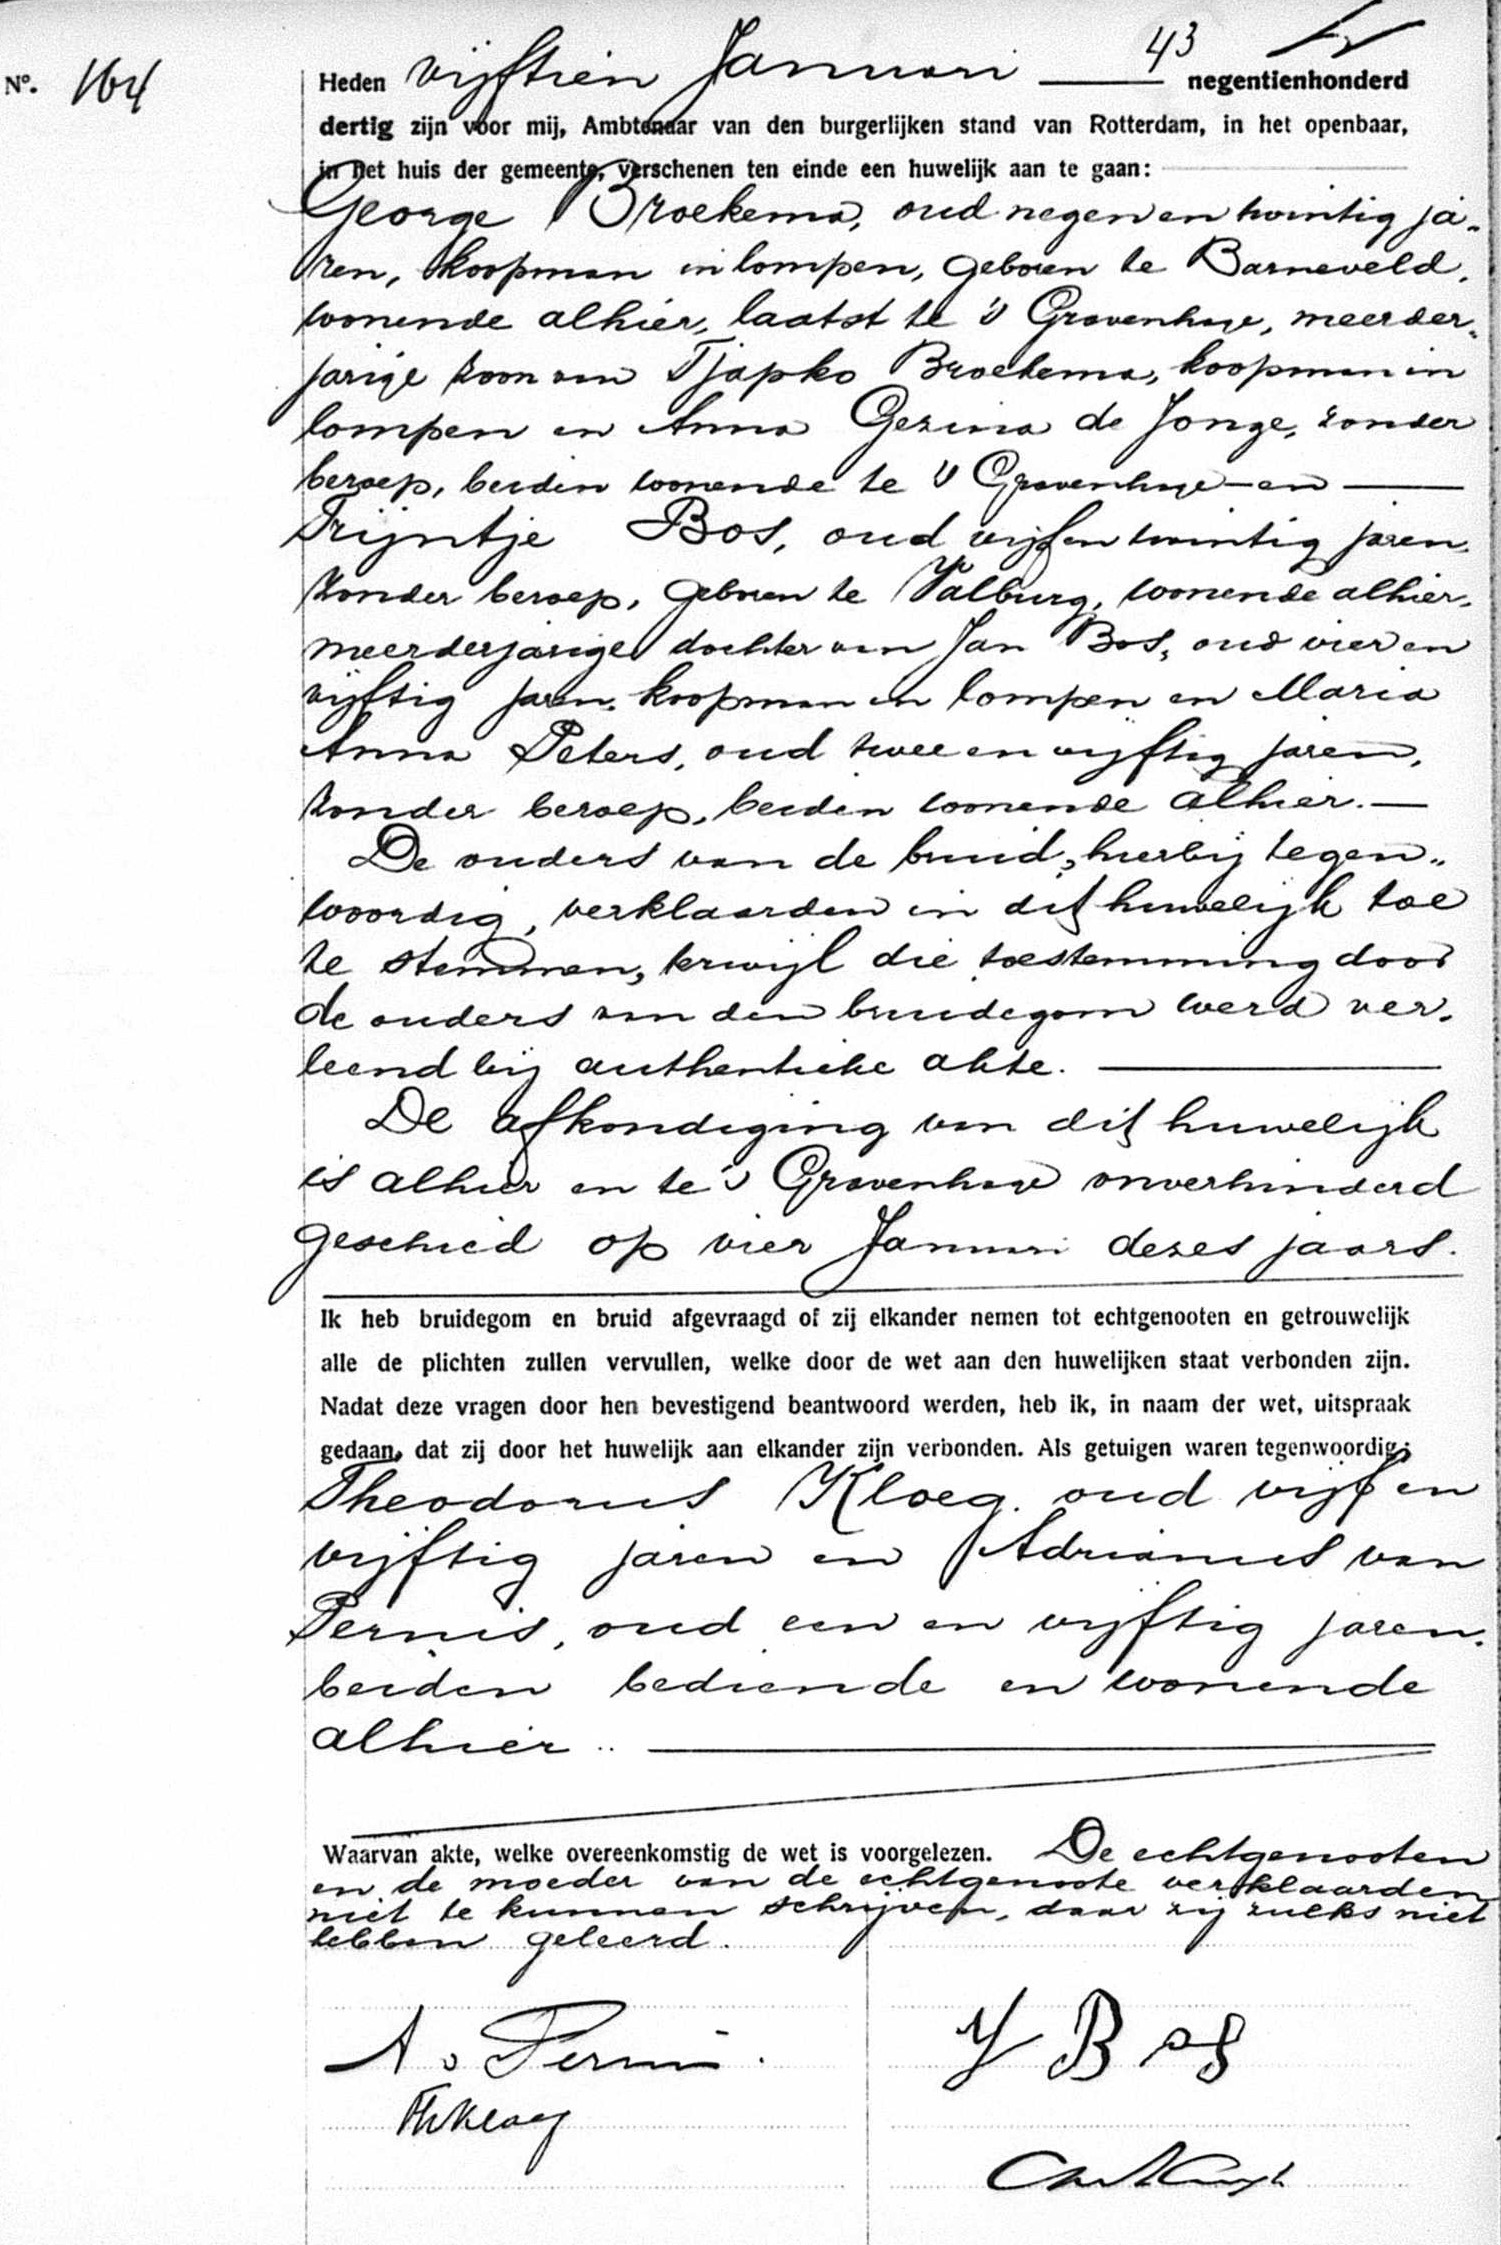 43
Nº. 164
Heden vijftien Januari negentienhonderd
dertig zijn voor mij, Ambtenaar van den burgerlijken stand van Rotterdam, in het openbaar,
in het huis der gemeente, verschenen ten einde een huwelijk aan te gaan:
George Broekema, oud negen en twintig ja„
ren, koopman in lompen, geboren te Barneveld,
wonende alhier, laatst te 's Gravenhage, meerder„
jarige zoon van Tjapko Broekema, koopman in
lompen en Anna Gezina de Jonge, zonder
beroep, beiden wonende te 's Gravenhage - en
Trijntje Bos, oud vijf en twintig jaren,
zonder beroep, geboren te Valburg, wonende alhier,
meerderjarige dochter van Jan Bos, oud vier en
vijftig jaren, koopman in lompen en Maria
Anna Peters, oud twee en vijftig jaren,
zonder beroep, beiden wonende alhier.
De ouders van de bruid, hierbij tegen„
woordig, verklaarden in dit huwelijk toe
te stemmen, terwijl die toestemming door
de ouders van den bruidegom werd ver„
leend bij authentieke akte.
De afkondiging van dit huwelijk
is alhier en te 's Gravenhage onverhinderd
geschied op vier Januari dezes jaars.
Ik heb bruidegom en bruid afgevraagd of zij elkander nemen tot echtgenooten en getrouwelijk
alle de plichten zullen vervullen, welke door de wet aan den huwelijken staat verbonden zijn.
Nadat deze vragen door hen bevestigend beantwoord werden, heb ik, in naam der wet, uitspraak
gedaan, dat zij door het huwelijk aan elkander zijn verbonden. Als getuigen waren tegenwoordig:
Theodorus Kloeg, oud vijf en
vijftig jaren en Adrianus van
Pernis, oud een en vijftig jaren,
beiden bediende en wonende
alhier..
Waarvan akte, welke overeenkomstig de wet is voorgelezen. De echtgenooten
en de moeder van de echtgenoote verklaarden
niet te kunnen schrijven, daar zij zulks niet
hebben geleerd.
A v Pernis.
J Bos
Th Kloeg